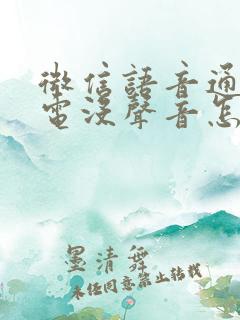 微信語音通
電沒聲音怎
墨清舞
未经同意禁止转载